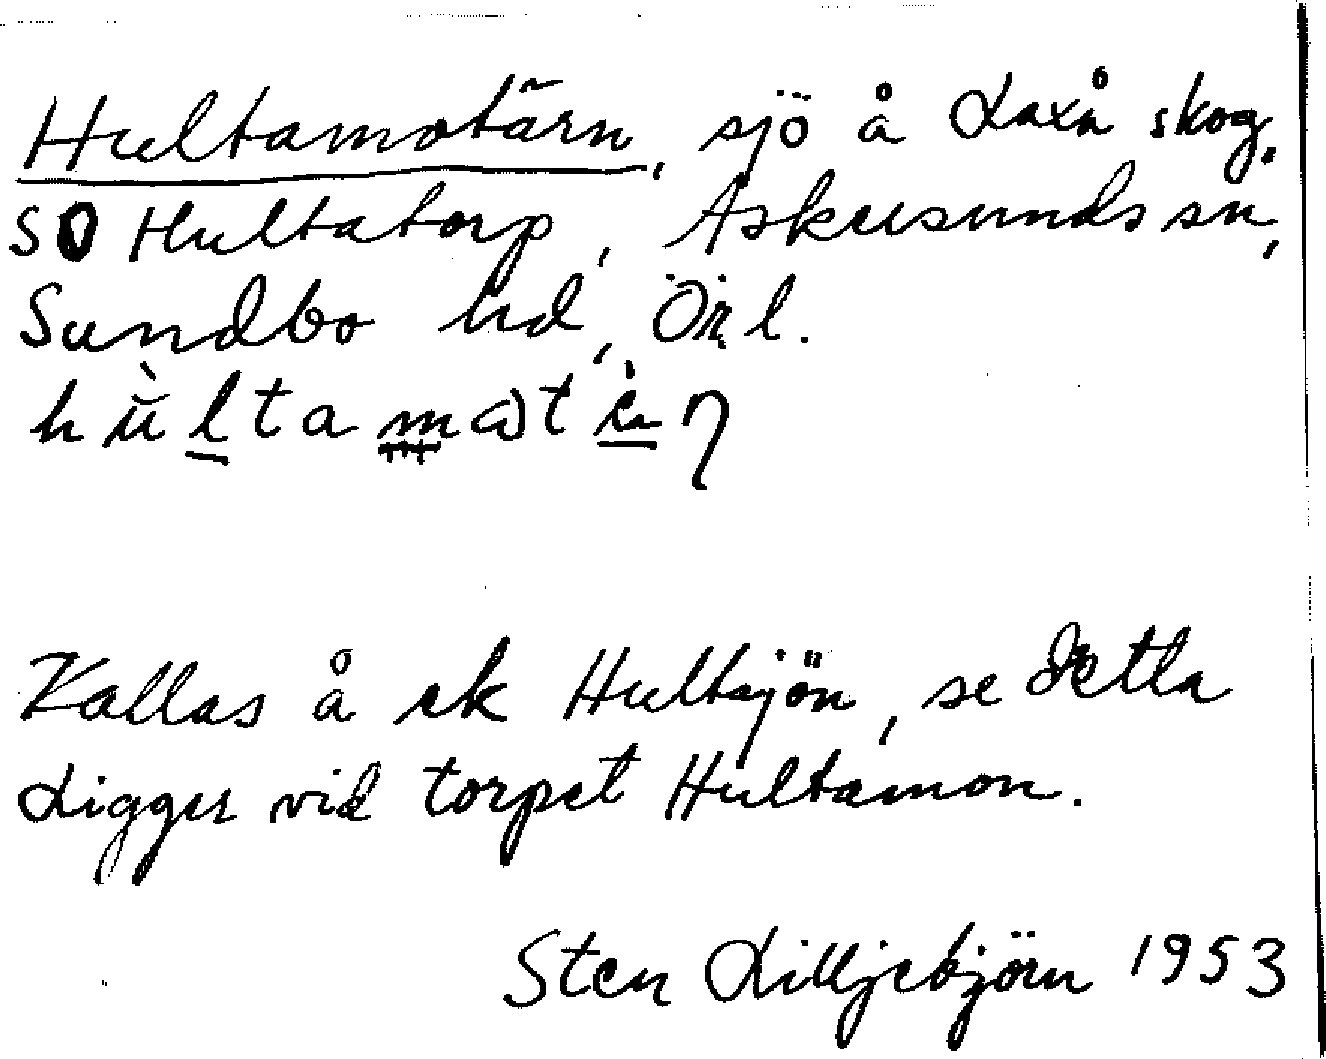 Hultamotärn, sjö å Laxå skog.
SO Hultatorp, Askersunds sn,
Sundbo hd, Ör l.
Kallas å ek Hultsjön, se detta
Ligger vid torpet Hultamon.
Sten Lilljebjörn 1953